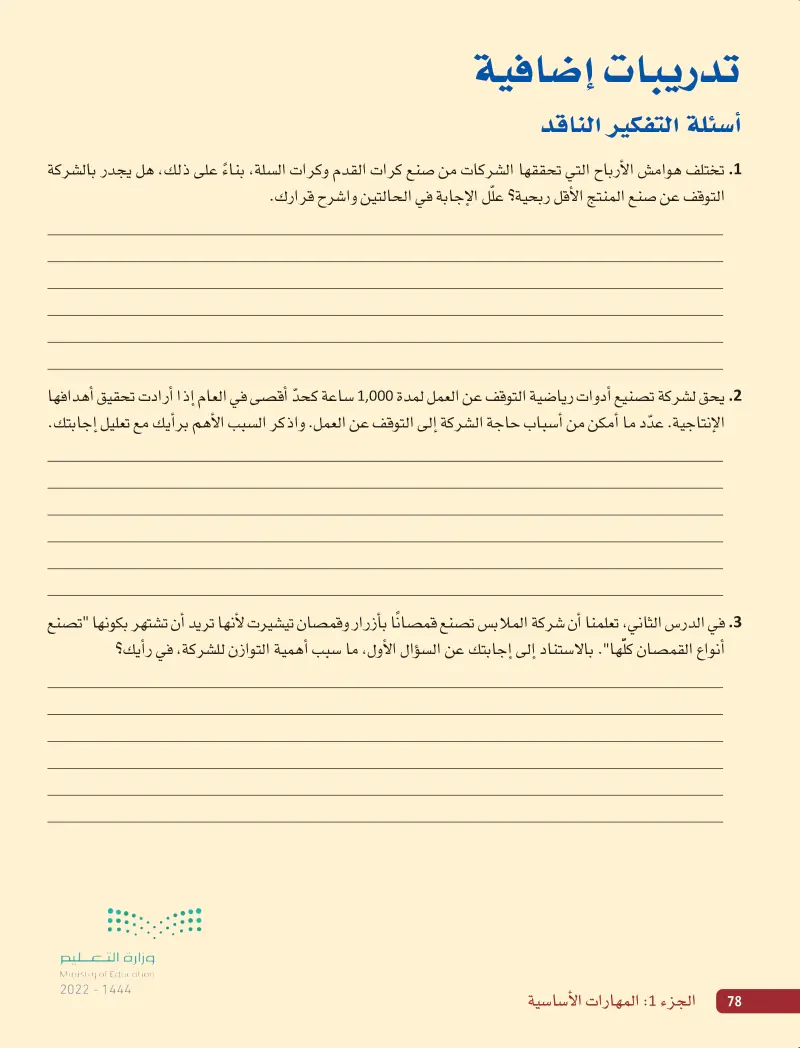 تدريبات إضافية
أسئلة التفكير الناقد
1. تختلف هوامش الأرباح التي تحققها الشركات من صنع كرات القدم وكرات السلة، بناءً على ذلك، هل يجدر بالشركة
التوقف عن صنع المنتج الأقل ربحية؟ علّل الإجابة في الحالتين واشرح قرارك.
2. يحق لشركة تصنيع أدوات رياضية التوقف عن العمل لمدة 1,000 ساعة كحدّ أقصى في العام إذا أرادت تحقيق أهدافها
الإنتاجية. عدّد ما أمكن من أسباب حاجة الشركة إلى التوقف عن العمل. واذكر السبب الأهم برأيك مع تعليل إجابتك.
3. في الدرس الثاني، تعلمنا أن شركة الملابس تصنع قمصانًا بأزرار وقمصان تيشيرت لأنها تريد أن تشتهر بكونها "تصنع
أنواع القمصان كلّها". بالاستناد إلى إجابتك عن السؤال الأول، ما سبب أهمية التوازن للشركة، في رأيك؟
وزارة التعـــليم
Ministry of Education
2022 - 1444
78 الجزء 1: المهارات الأساسية